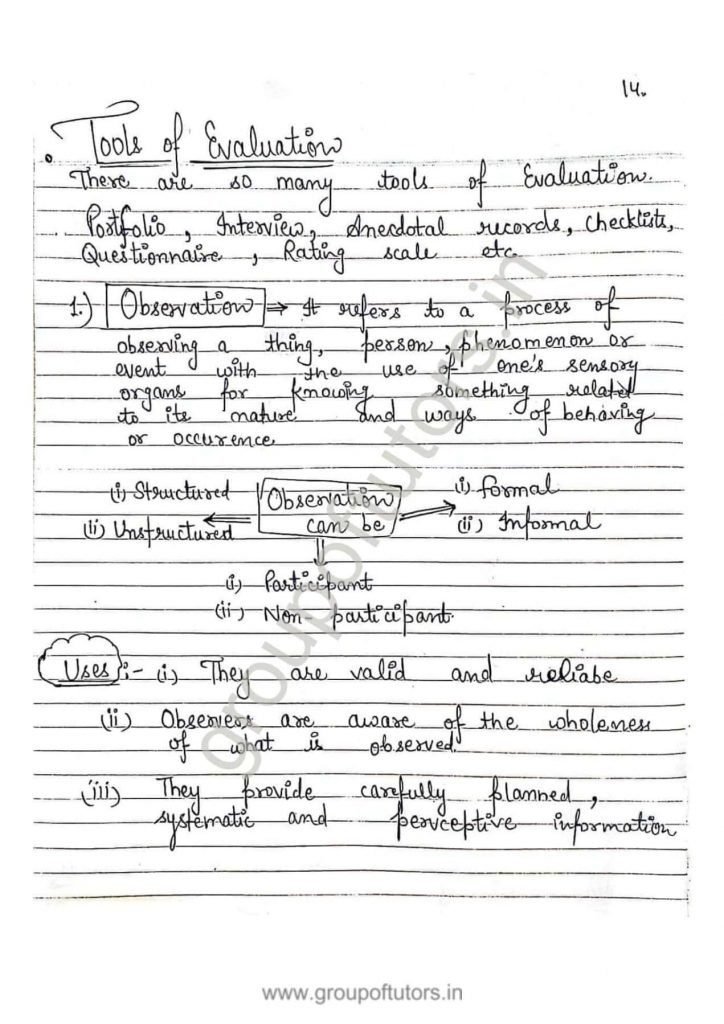 14.
Tools of Evaluation
There are so many tools of Evaluation.
Portfolio, Interview, Anecdotal records, Checklists,
Questionnaire, Rating scale etc.
1.) Observation ⇒ It refers to a process of
observing a thing, person, phenomenon or
event with the use of one's sensory
organs for knowing something related
to its nature and ways of behaving
or occurence
(i) Structured
(ii) Unstructured
Observation
can be
(i) Formal
(ii) Informal
(i) Participant
(ii) Non-participant.
Uses :- (i) They are valid and reliabe
(ii) Observers are aware of the wholeness
of what is observed.
(iii) They provide carefully planned,
systematic and perceptive information
groupoftutors.in
www.groupoftutors.in